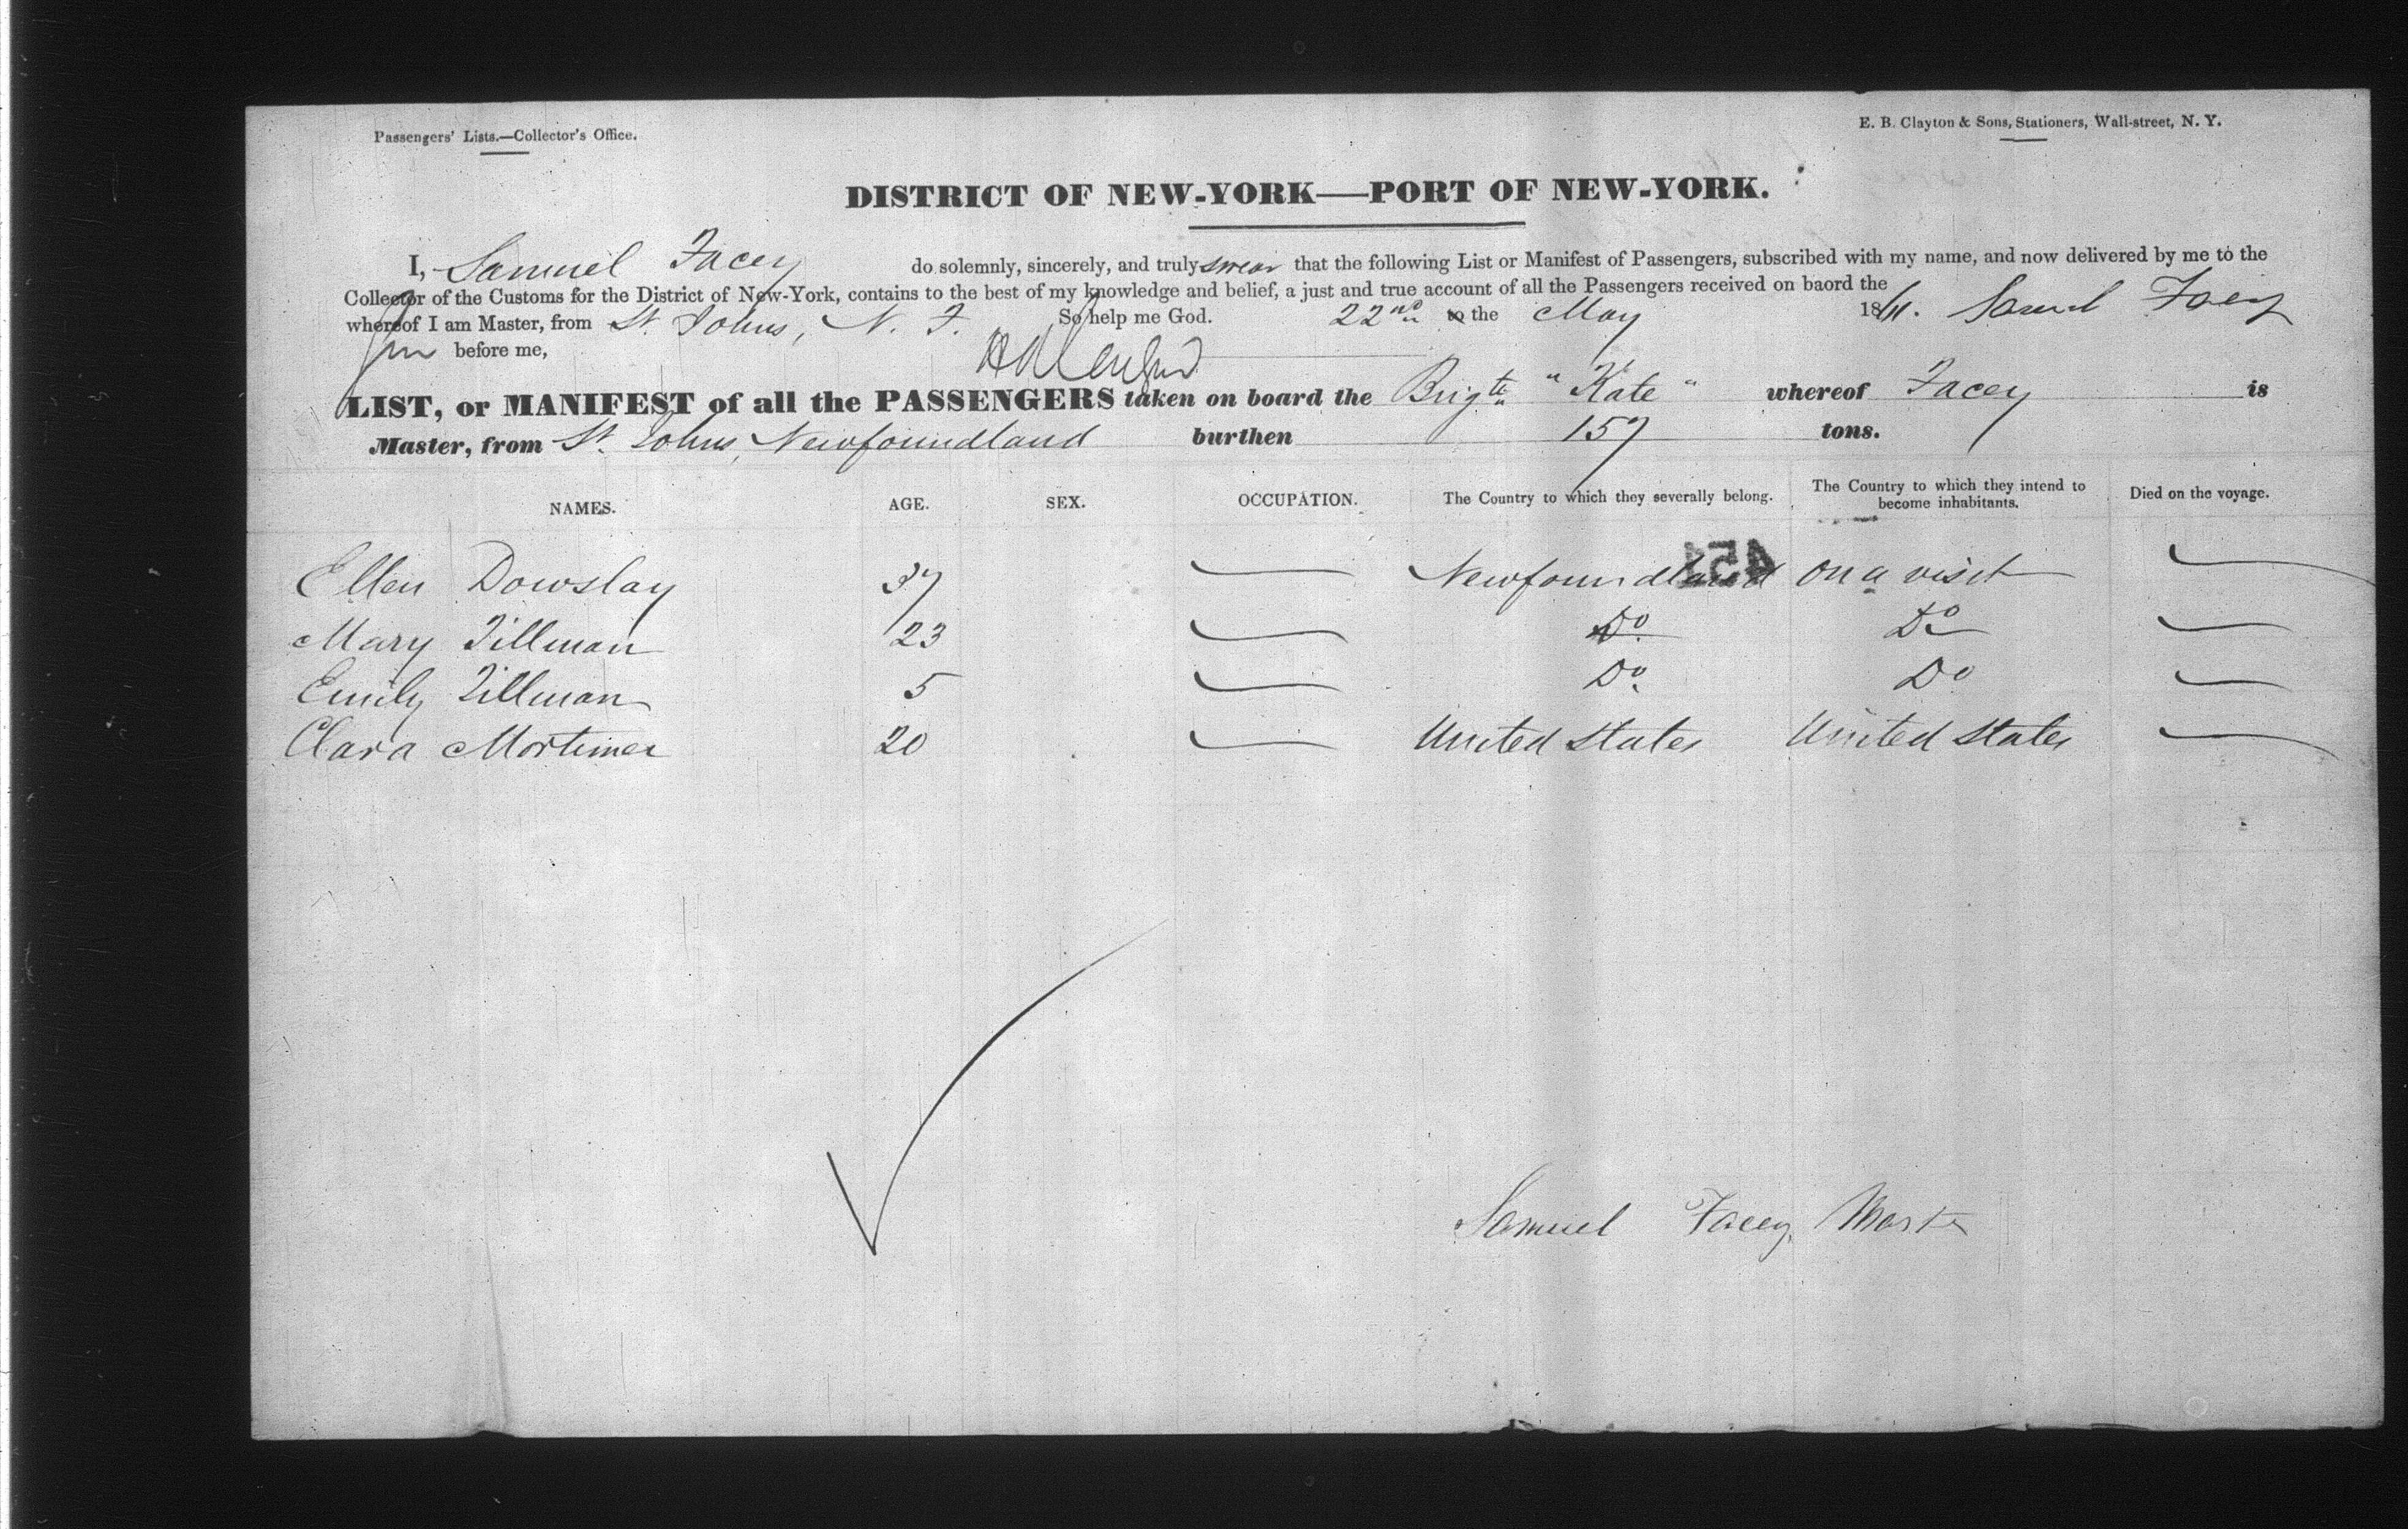 Passengers' Lists.—Collector's Office.
E. B. Clayton & Sons, Stationers, Wall-street, N. Y.
DISTRICT OF NEW-YORK—PORT OF NEW-YORK.
I, Samuel Facey do solemnly, sincerely, and truly swear that the following List or Manifest of Passengers, subscribed with my name, and now delivered by me to the
Collector of the Customs for the District of New-York, contains to the best of my knowledge and belief, a just and true account of all the Passengers received on baord the
whereof I am Master, from St. Johns, N. F. So help me God. 22nd to the May 1861. Samuel Facey
before me,
LIST, or MANIFEST of all the PASSENGERS taken on board the Brigtn "Kate" whereof Facey is
Master, from St. Johns, Newfoundland burthen 157 tons.
NAMES. AGE. SEX. OCCUPATION. The Country to which they severally belong. The Country to which they intend to become inhabitants. Died on the voyage.
454
Ellen Dowslay 37 — Newfoundland on a visit —
Mary Tillman 23 — Do. Do —
Emily Tillman 5 — Do. Do —
Clara Mortimer 20 — United States United States —
Samuel Facey, Master